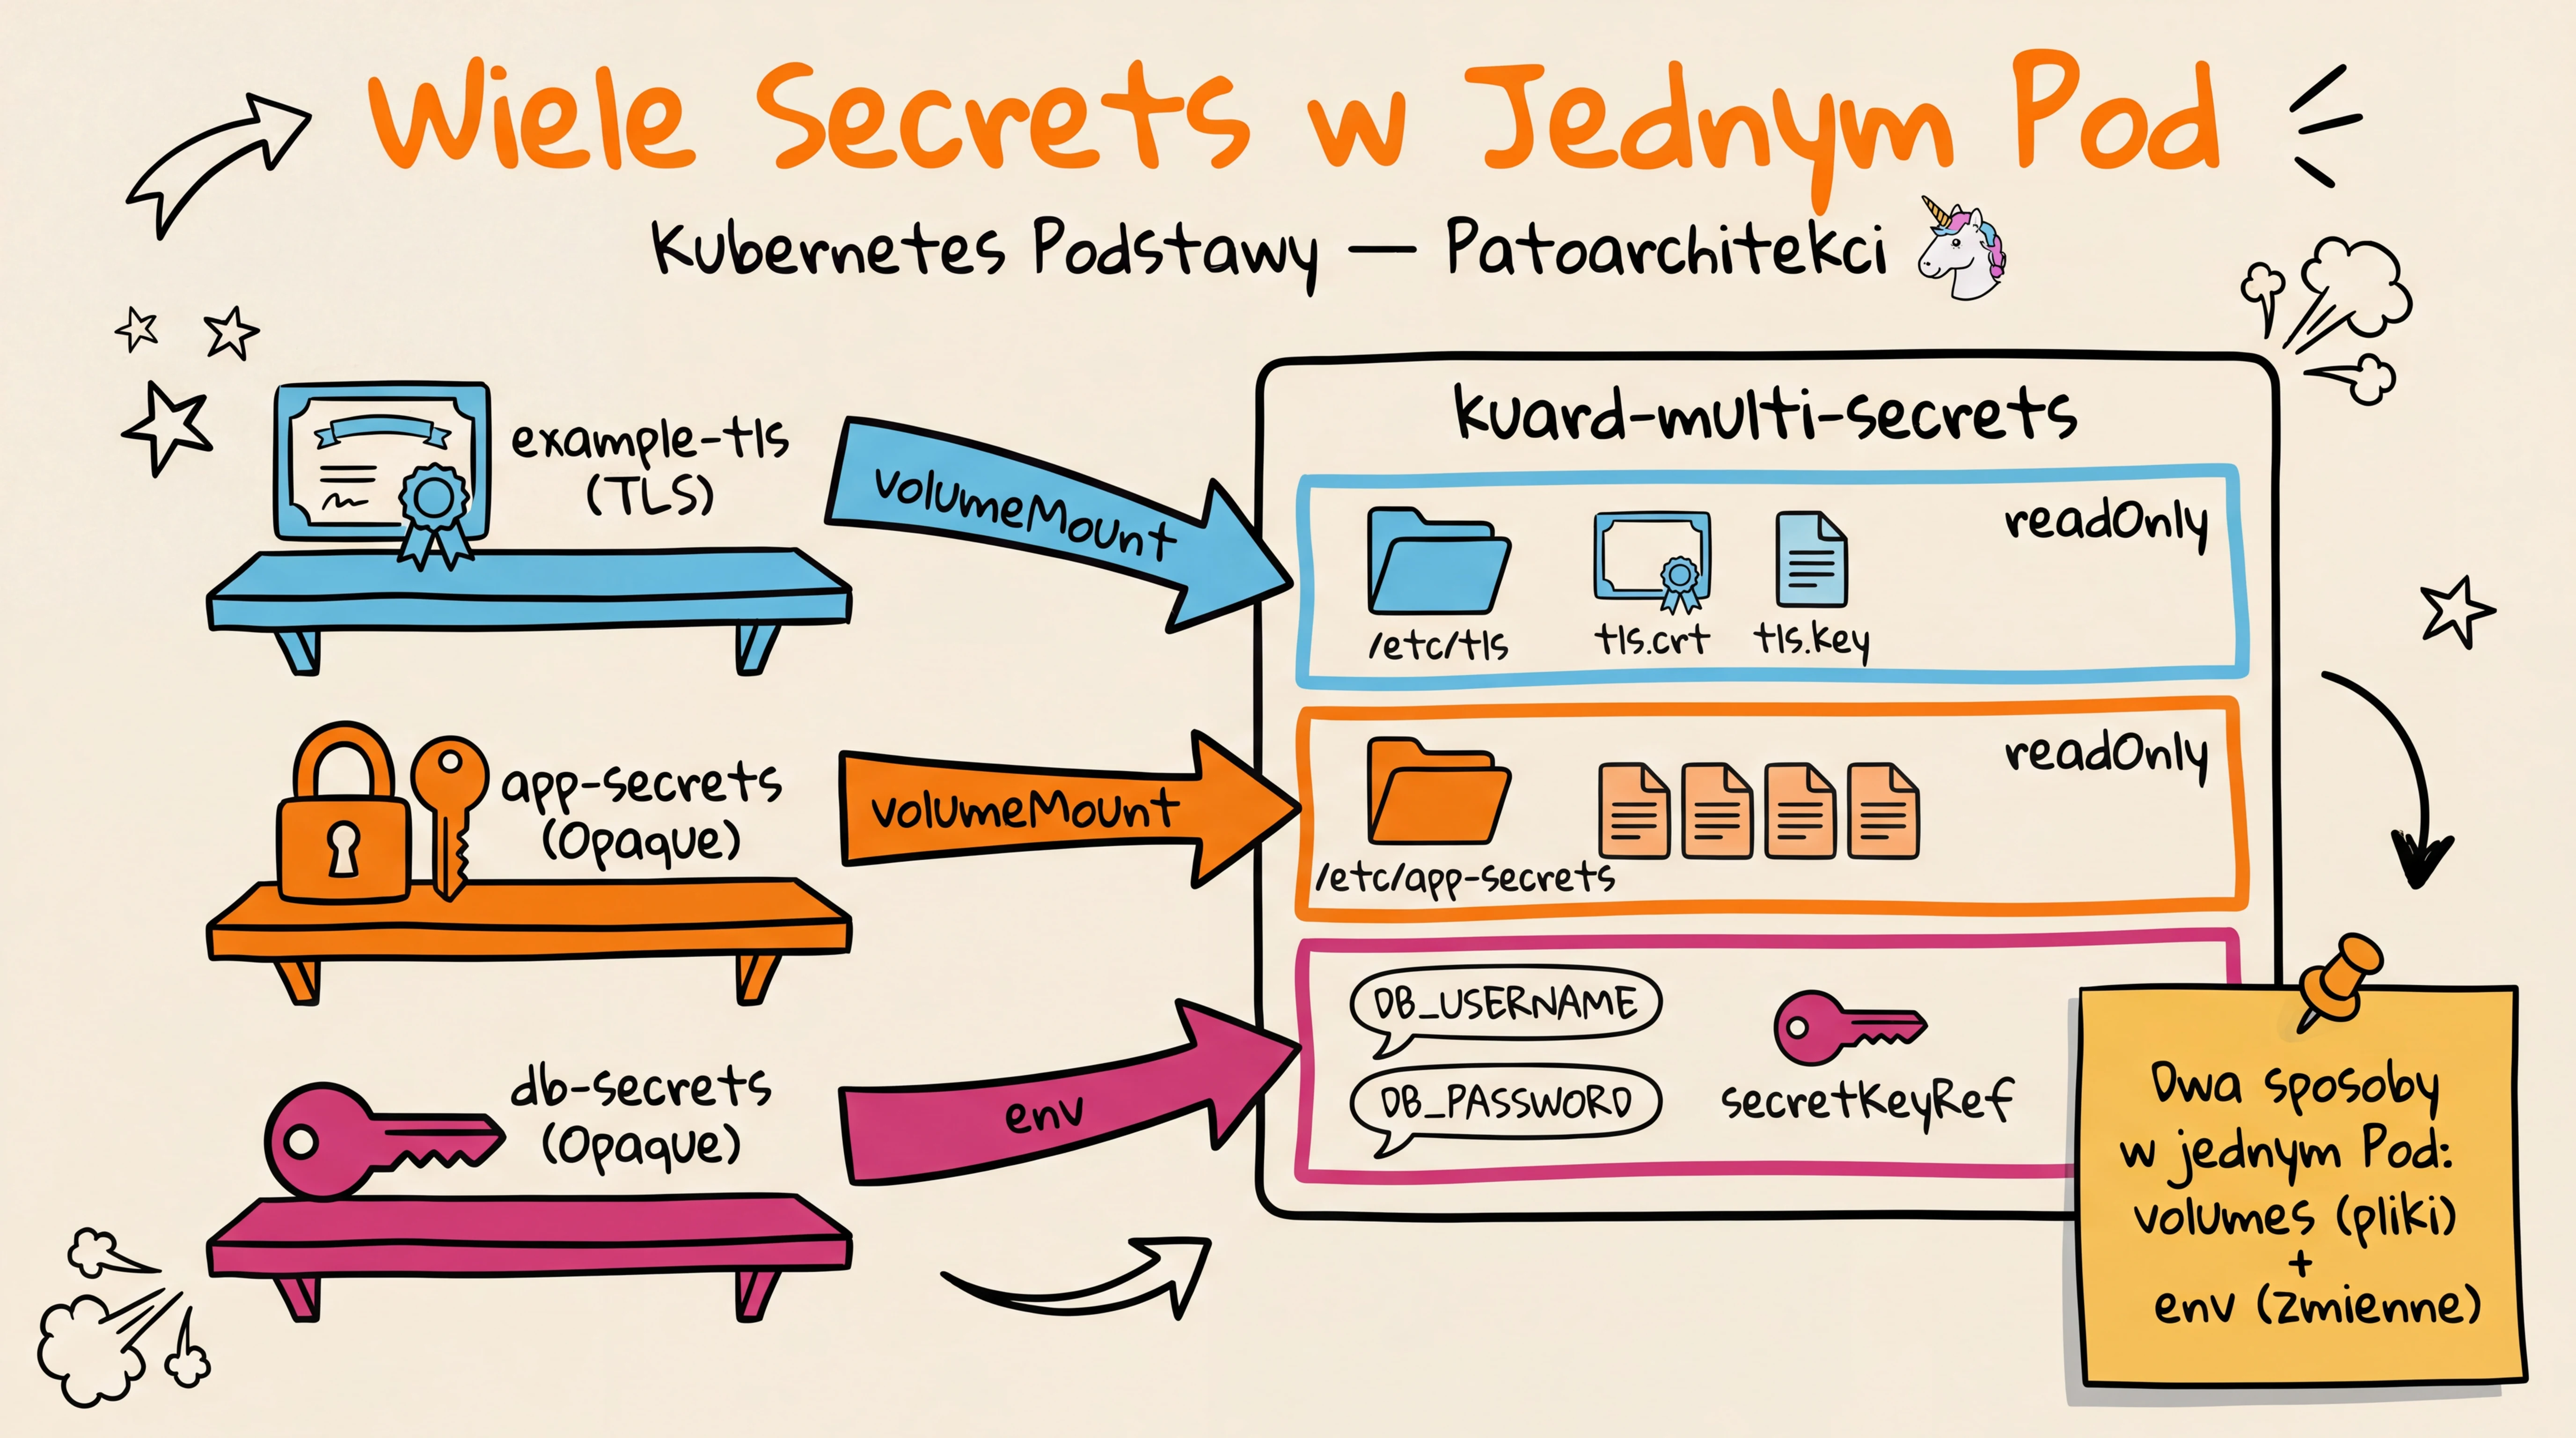 Wiele Secrets w Jednym Pod
Kubernetes Podstawy — Patoarchitekci
example-tls
(TLS)
volumeMount
app-secrets
(Opaque)
volumeMount
db-secrets
(Opaque)
env
kuard-multi-secrets
readOnly
/etc/tls
tls.crt
tls.key
readOnly
/etc/app-secrets
DB_USERNAME
DB_PASSWORD
secretKeyRef
Dwa sposoby
w jednym Pod:
volumes (pliki)
+
env (zmienne)